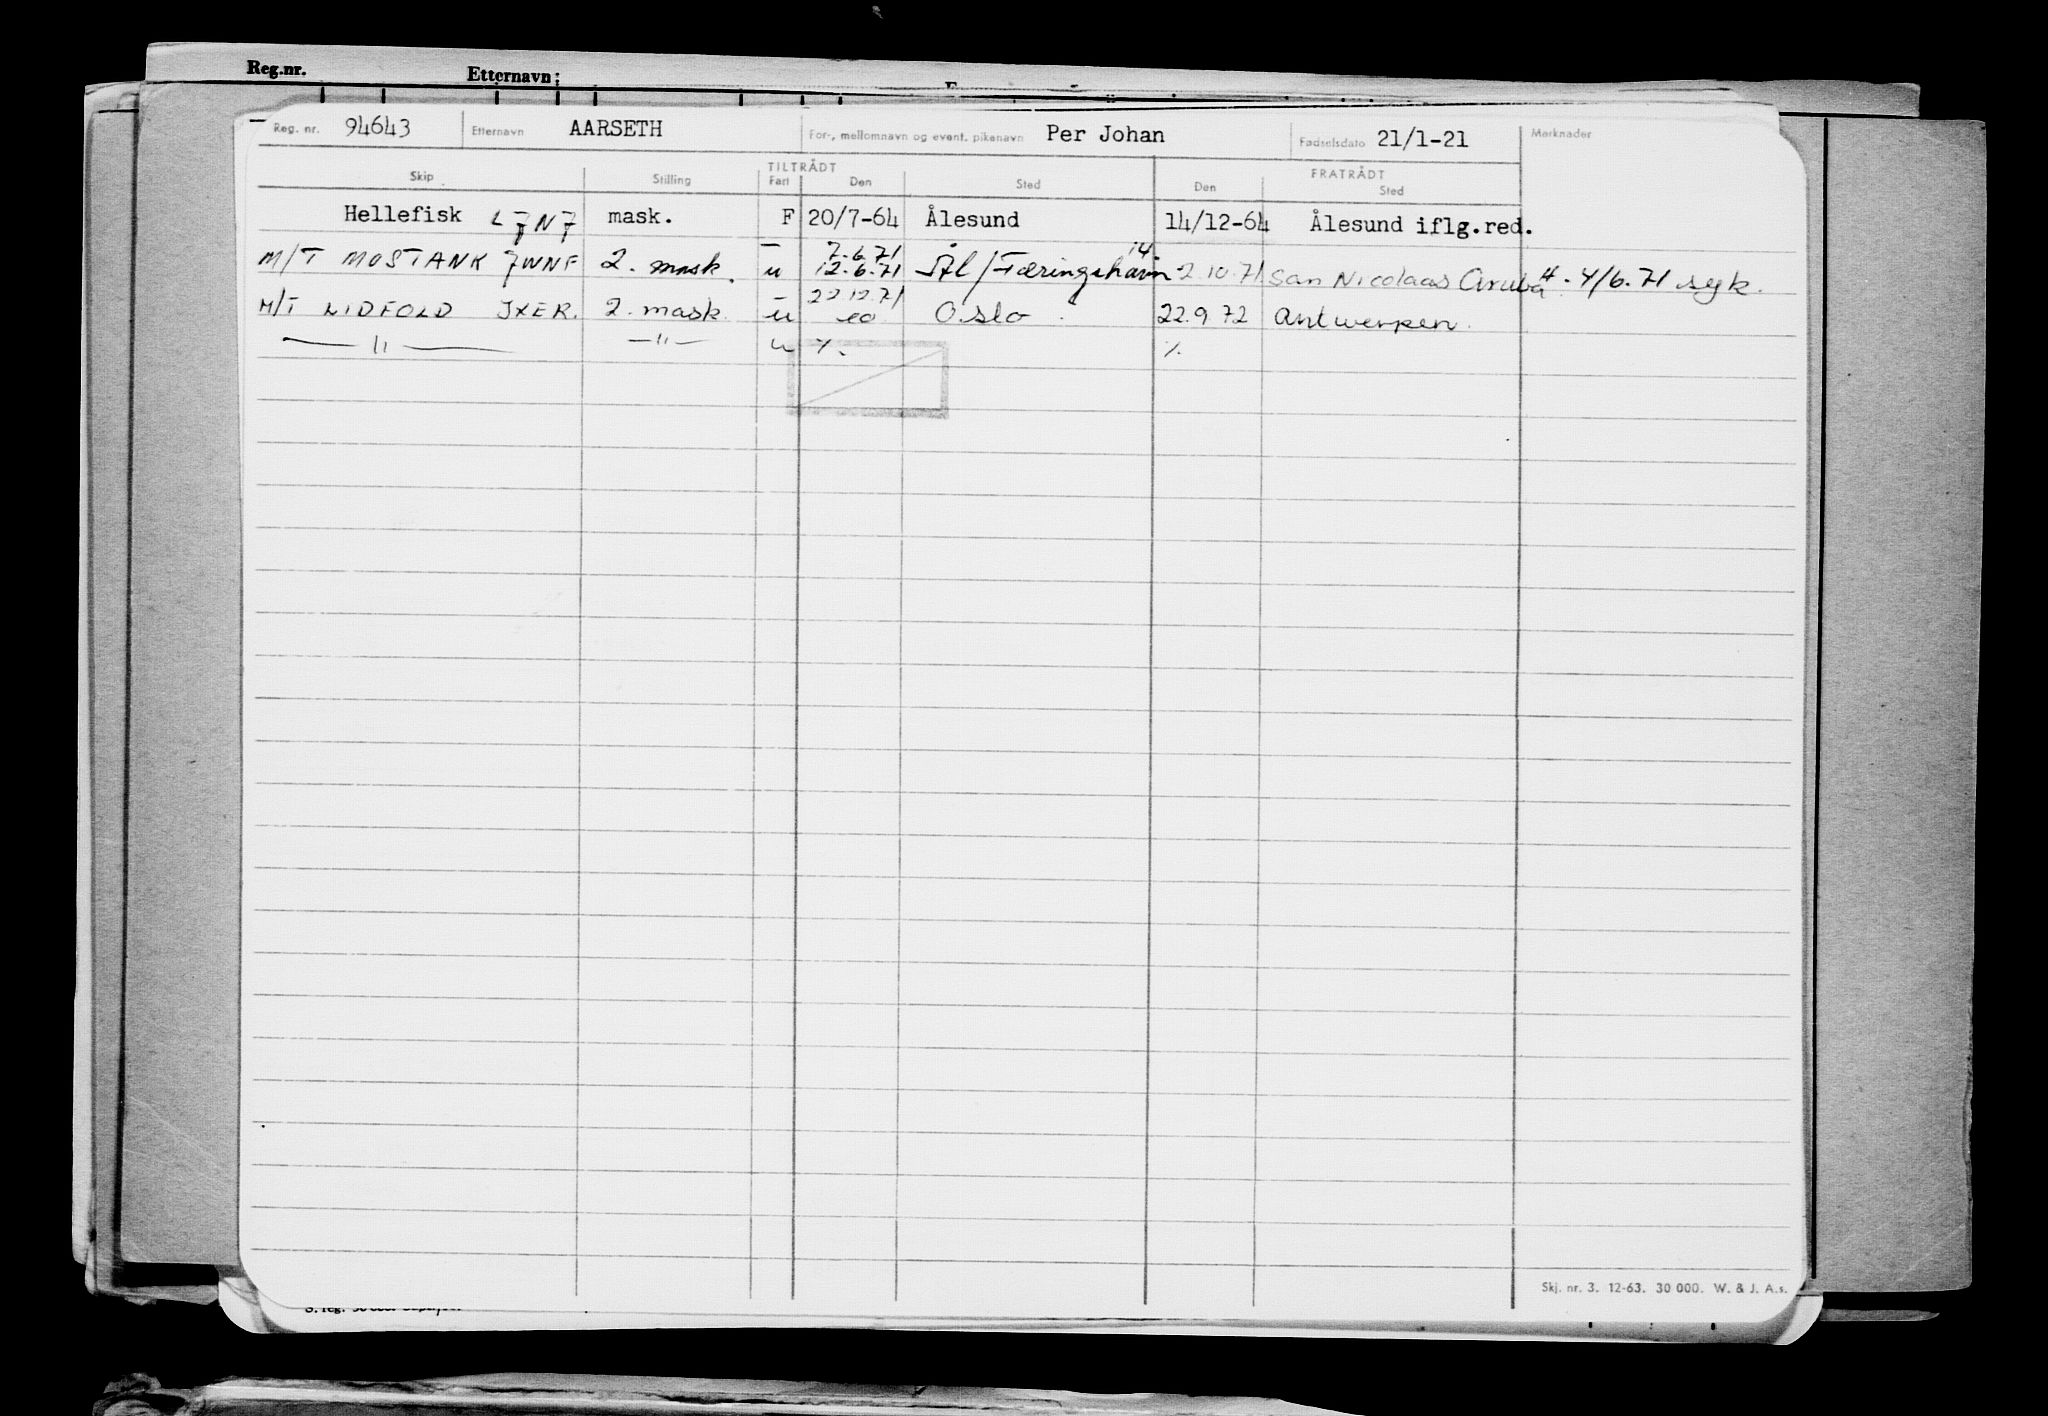 Reg.nr. Etternavn:
Reg. nr. 94643 Etternavn AARSETH For-, mellomnavn og event. pikenavn Per Johan Fødselsdato 21/1-21 Merknader
TILTRÅDT FRATRÅDT
Skip Stilling Fart Den Sted Den Sted
Hellefisk L7N7 mask. F 20/7-64 Ålesund 14/12-64 Ålesund iflg.red.
7.6.71 14
M/T MOSTANK JWNF 2. mask. u 12.6.71 Ål/Færingehavn 2.10.71 San Nicolaas Aruba 4/6.71 syk.
22.12.71
M/T LIDFOLD JXER. 2. mask. u Oslo 22.9 72 Antwerpen.
— " — — " — u %. %
Skj. nr. 3. 12-63. 30 000. W. & J. A.s.